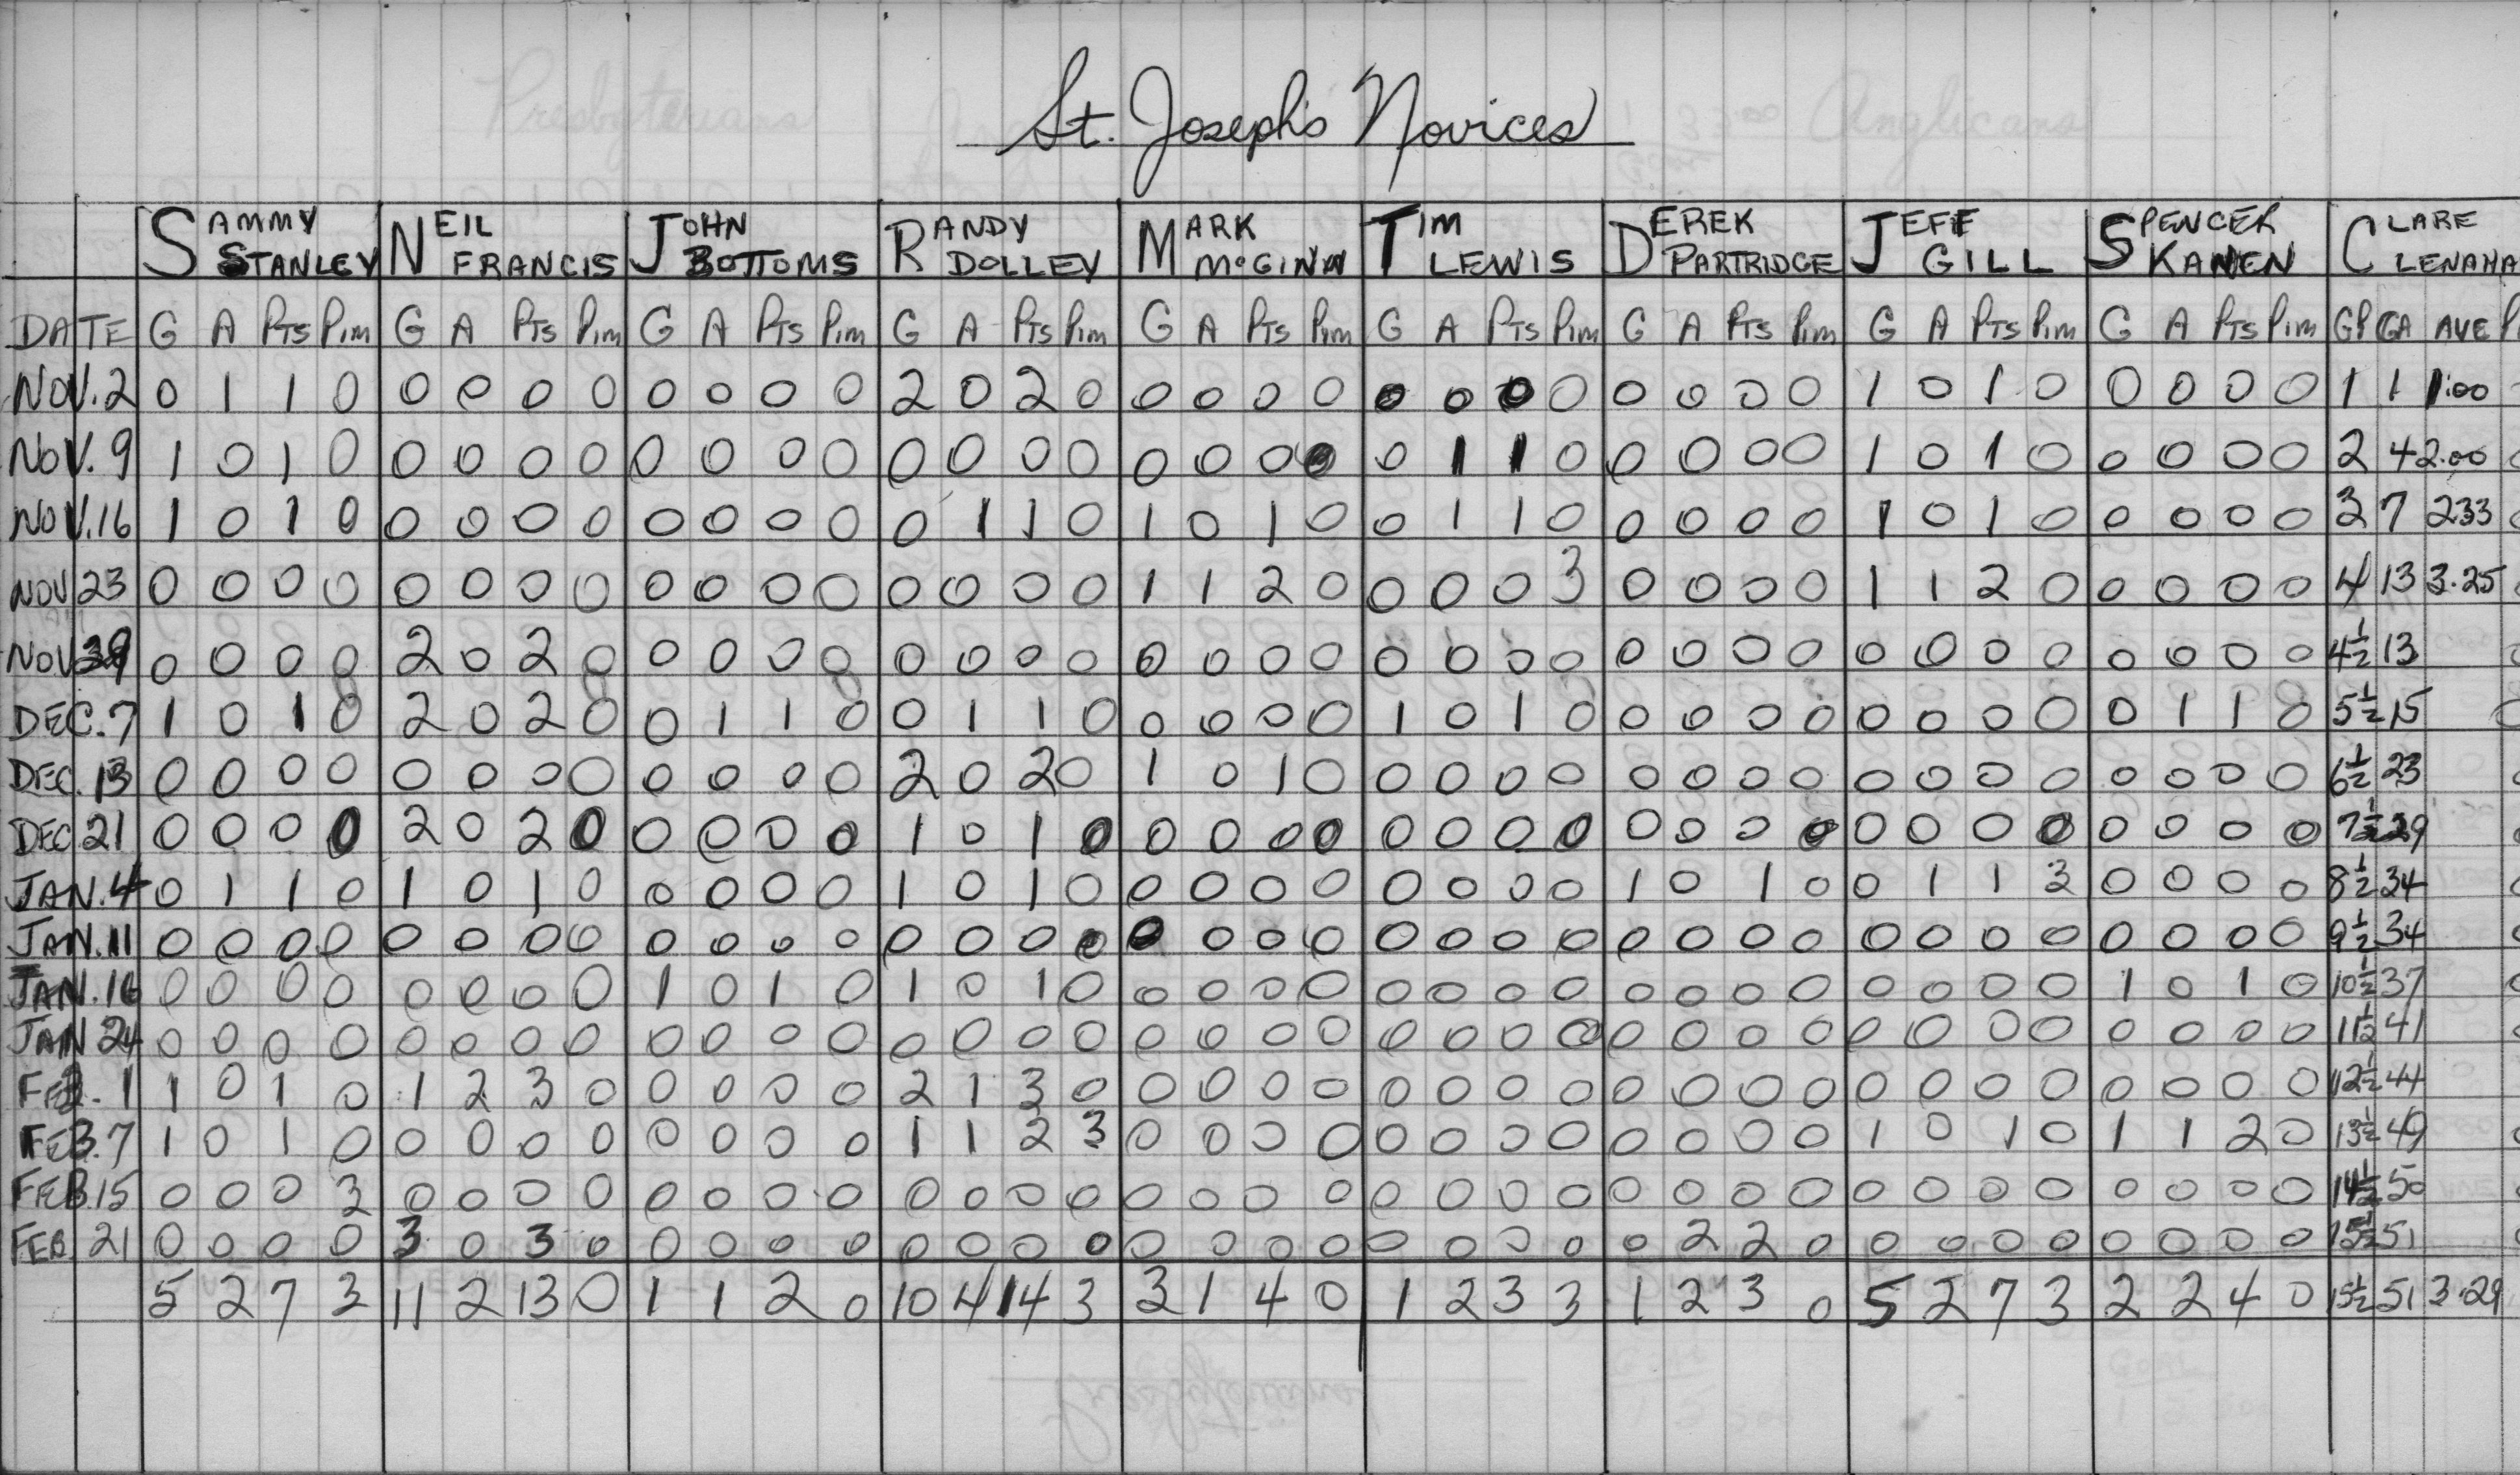 St. Joseph's Novices
SAMMY STANLEY NEIL FRANCIS JOHN BOTTOMS RANDY DOLLEY MARK McGINN TIM LEWIS DEREK PARTRIDGE JEFF GILL SPENCER KANEN CLARE CLENAHA
DATE G A PTS PIM G A PTS PIM G A PTS PIM G A PTS PIM G A PTS PIM G A PTS PIM G A PTS PIM G A PTS PIM G A PTS PIM GP GA AVE P
NOV. 2 0 1 1 0 0 0 0 0 0 0 0 0 2 0 2 0 0 0 0 0 0 0 0 0 0 0 0 0 1 0 1 0 0 0 0 0 1 1 1.00
NOV. 9 1 0 1 0 0 0 0 0 0 0 0 0 0 0 0 0 0 0 0 0 0 1 1 0 0 0 0 0 1 0 1 0 0 0 0 0 2 4 2.00
NOV. 16 1 0 1 0 0 0 0 0 0 0 0 0 0 1 1 0 1 0 1 0 0 1 1 0 0 0 0 0 1 0 1 0 0 0 0 0 3 7 233
NOV 23 0 0 0 0 0 0 0 0 0 0 0 0 0 0 0 0 1 1 2 0 0 0 0 3 0 0 0 0 1 1 2 0 0 0 0 0 4 13 3.25
NOV 0 0 0 0 2 0 2 0 0 0 0 0 0 0 0 0 0 0 0 0 0 0 0 0 0 0 0 0 0 0 0 0 0 0 0 0 4½ 13
DEC. 7 1 0 1 0 2 0 2 0 0 1 1 0 0 1 1 0 0 0 0 0 1 0 1 0 0 0 0 0 0 0 0 0 0 1 1 0 5½ 15
DEC. 13 0 0 0 0 0 0 0 0 0 0 0 0 2 0 2 0 1 0 1 0 0 0 0 0 0 0 0 0 0 0 0 0 0 0 0 0 6½ 23
DEC 21 0 0 0 0 2 0 2 0 0 0 0 0 1 0 1 0 0 0 0 0 0 0 0 0 0 0 0 0 0 0 0 0 0 0 0 0 7½ 29
JAN. 4 0 1 1 0 1 0 1 0 0 0 0 0 1 0 1 0 0 0 0 0 0 0 0 0 1 0 1 0 0 1 1 3 0 0 0 0 8½ 34
JAN. 11 0 0 0 0 0 0 0 0 0 0 0 0 0 0 0 0 0 0 0 0 0 0 0 0 0 0 0 0 0 0 0 0 0 0 0 0 9½ 34
JAN. 16 0 0 0 0 0 0 0 0 1 0 1 0 1 0 1 0 0 0 0 0 0 0 0 0 0 0 0 0 0 0 0 0 1 0 1 0 10½ 37
JAN 24 0 0 0 0 0 0 0 0 0 0 0 0 0 0 0 0 0 0 0 0 0 0 0 0 0 0 0 0 0 0 0 0 0 0 0 0 11½ 41
FEB. 1 1 0 1 0 1 2 3 0 0 0 0 0 2 1 3 0 0 0 0 0 0 0 0 0 0 0 0 0 0 0 0 0 0 0 0 0 12½ 44
FEB. 7 1 0 1 0 0 0 0 0 0 0 0 0 1 1 2 3 0 0 0 0 0 0 0 0 0 0 0 0 1 0 1 0 1 1 2 0 13½ 49
FEB. 15 0 0 0 3 0 0 0 0 0 0 0 0 0 0 0 0 0 0 0 0 0 0 0 0 0 0 0 0 0 0 0 0 0 0 0 0 14½ 50
FEB. 21 0 0 0 0 3 0 3 0 0 0 0 0 0 0 0 0 0 0 0 0 0 0 0 0 0 2 2 0 0 0 0 0 0 0 0 0 15½ 51
5 2 7 3 11 2 13 0 1 1 2 0 10 4 14 3 3 1 4 0 1 2 3 3 1 2 3 0 5 2 7 3 2 2 4 0 15½ 51 3.29